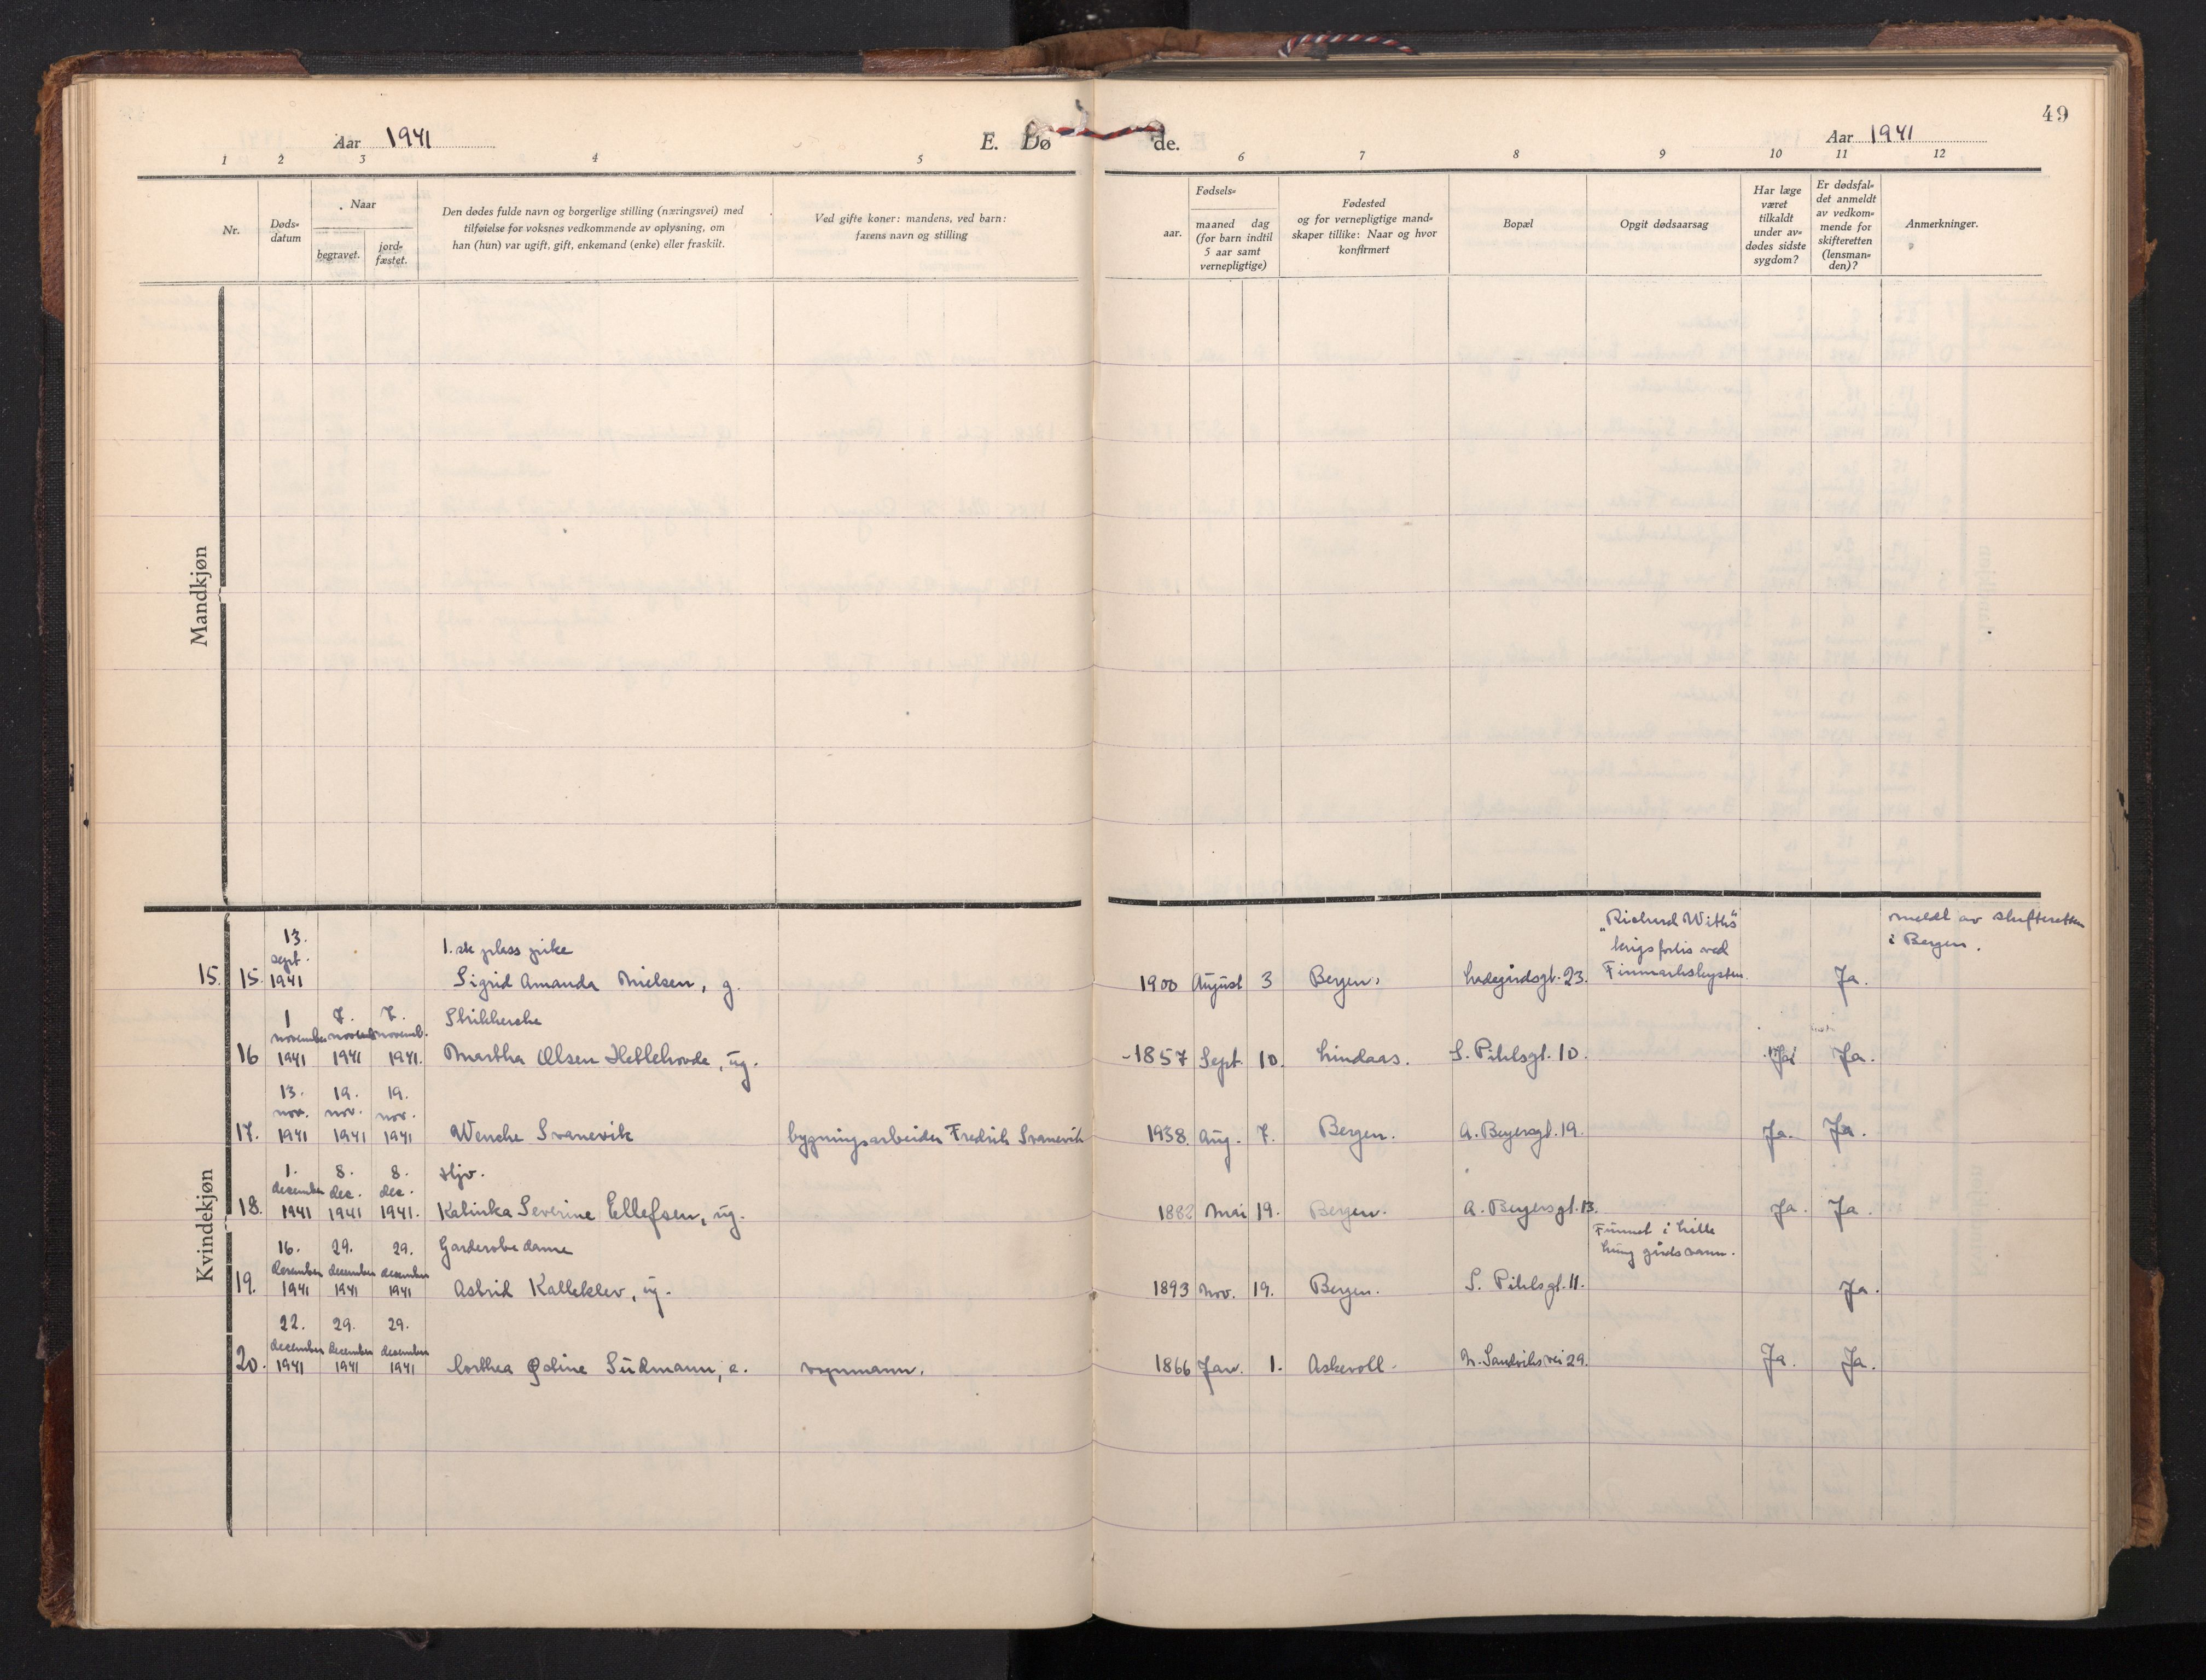 49
Aar 1941
E. Dø de.
Aar 1941
1 2 3 4 5 6 7 8 9 10 11 12
Nr.
Døds-
datum
Naar
begravet.
jord-
fæstet.
Den dødes fulde navn og borgerlige stilling (næringsvei) med
tilføielse for voksnes vedkommende av oplysning, om
han (hun) var ugift, gift, enkemand (enke) eller fraskilt.
Ved gifte koner: mandens, ved barn:
farens navn og stilling
Fødsels-
aar.
maaned dag
(for barn indtil
5 aar samt
vernepligtige)
Fødested
og for vernepligtige mand-
skaper tillike: Naar og hvor
konfirmert
Bopæl
Opgit dødsaarsag
Har læge
været
tilkaldt
under av-
dødes sidste
sygdom?
Er dødsfal-
det anmeldt
av vedkom-
mende for
skifteretten
(lensman-
den)?
Anmerkninger.
Mandkjøn
Kvindekjøn
13.
sept.
1. ste plass pike
"Richard Withs"
krigsforlis ved
meldt av skifteretten
i Bergen.
15. 15. 1941 Sigrid Amanda Nielsen, g. 1900 August 3 Bergen. Ladegårdsgt. 23. Finmarkskysten. Ja.
1 7. 7. Strikkerske
november novemb novemb.
16 1941 1941 1941. Martha Olsen Hetlehovde, ug. -1857 Sept. 10. Lindaas. S. Pihlsgt. 10. Ja Ja.
13. 19. 19.
nov. nov. nov.
17. 1941 1941 1941 Wenche Svanevik bygningsarbeider Fredrik Svanevik 1938. Aug. 7. Bergen. A. Beyersgt. 19. Ja. Ja.
1. 8. 8. Hjv.
december dec. dec.
18. 1941 1941 1941. Kalinka Severine Ellefsen, ug. 1882 Mai 19. Bergen. A. Beyersgt. 13. Ja. Ja.
16. 29. 29. Garderobedame
Funnet i Lille
Lungegårdsvann.
desember december desember
19. 1941 1941 1941 Astrid Kalleklev, ug. 1893 Nov. 19. Bergen. S. Pihlsgt. 11. Ja.
22. 29. 29.
december december desember
20. 1941 1941 1941 Sudmann, e. vognmann. 1866 Jan. 1. Askevoll. N. Sandviksvei 29. Ja. Ja.